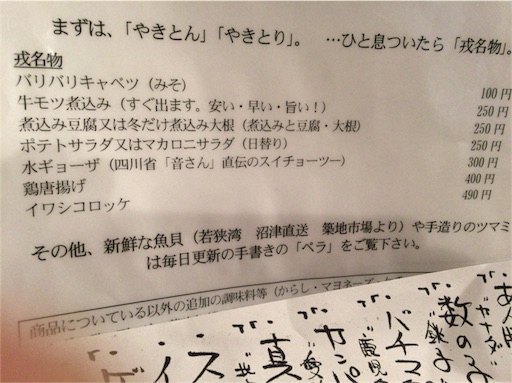 まずは、「やきとん」「やきとり」。 …ひと息ついたら「戎名物」。
戎名物
バリバリキャベツ（みそ） 100円
牛モツ煮込み（すぐ出ます。安い・早い・旨い！） 250円
煮込み豆腐又は冬だけ煮込み大根（煮込みと豆腐・大根） 250円
ポテトサラダ又はマカロニサラダ（日替り） 250円
水ギョーザ（四川省「音さん」直伝のスイチョーツー） 300円
鶏唐揚げ 400円
イワシコロッケ 490円
その他、新鮮な魚貝（若狭湾 沼津直送 築地市場より）や手造りのツマミ
は毎日更新の手書きの「ペラ」をご覧下さい。
商品についている以外の追加の調味料等（からし・マヨネーズ
数の子
バチマ
カンパ
真
ス
ディ